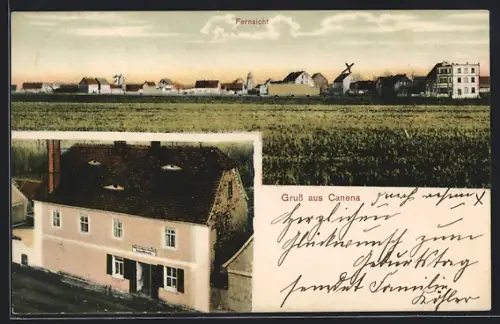 Fernsicht
Gruß aus Canena
Herzlichen
Glückwunsch zum
Geburtstag
sendet Familie
Köhler